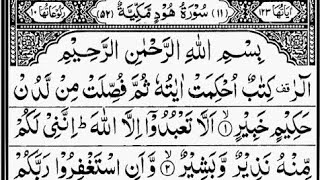 اٰیَاتُهَا ١٢٣ (١١) سُوْرَةُ هُوْدٍ مَّكِّيَّةٌ (٥٢) رُكُوْعَاتُهَا ١٠
بِسْمِ اللّٰهِ الرَّحْمٰنِ الرَّحِيْمِ
الٓرٰ ࣞ قف كِتٰبٌ اُحْكِمَتْ اٰيٰتُهٗ ثُمَّ فُصِّلَتْ مِنْ لَّدُنْ
حَكِيْمٍ خَبِيْرٍ ۙ﴿١﴾ اَلَّا تَعْبُدُوْۤا اِلَّا اللّٰهَ ؕ اِنَّنِيْ لَكُمْ
مِّنْهُ نَذِيْرٌ وَّبَشِيْرٌ ۙ﴿٢﴾ وَّاَنِ اسْتَغْفِرُوْا رَبَّكُمْ